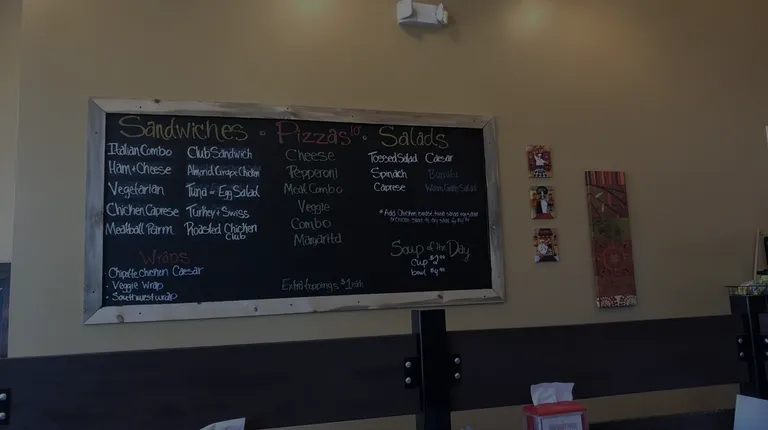 Sandwiches • Pizzas 10" • Salads
Italian Combo
Ham + Cheese
Vegetarian
Chicken Caprese
Meatball Parm
Club Sandwich
Almond Grape Chicken
Tuna or Egg Salad
Turkey + Swiss
Roasted Chicken
Club
Wraps
Chipotle chicken Caesar
• Veggie Wrap
• Southwest wrap
Cheese
Pepperoni
Meat Combo
Veggie
Combo
Margarita
Extra toppings $1
Tossed Salad
Spinach
Caprese
Caesar
* Add Chicken
Soup of the Day
cup
or
bowl